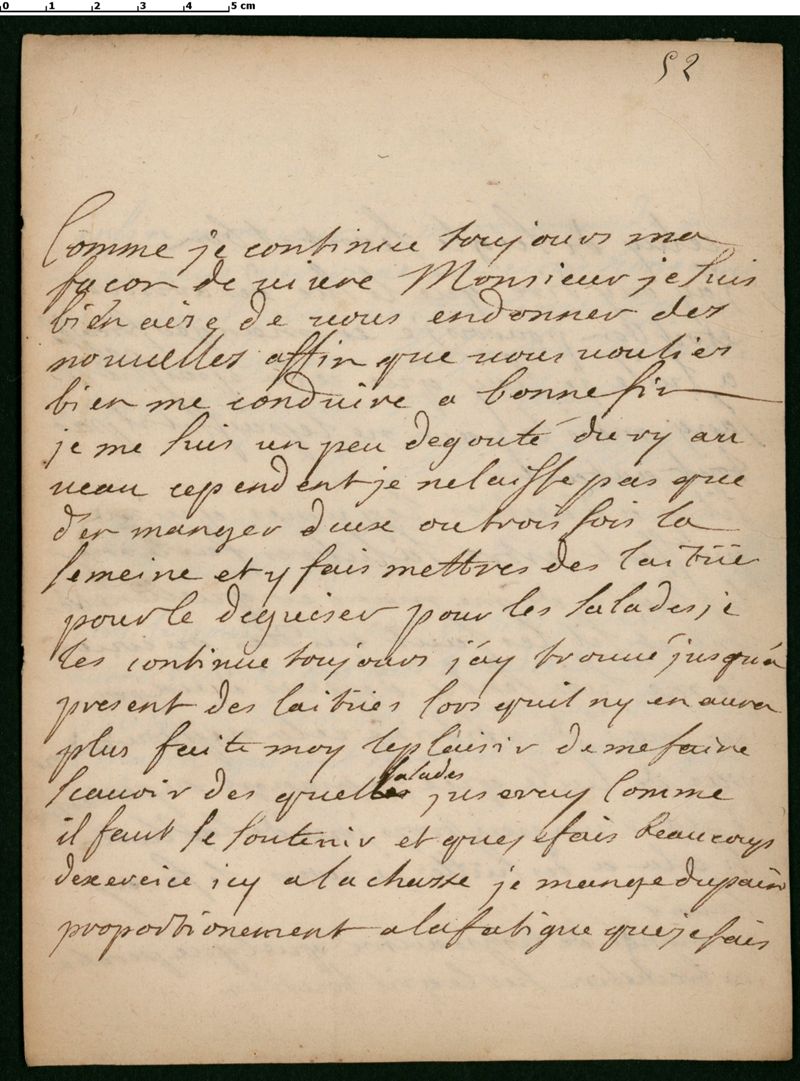 0 1 2 3 4 5 cm
52
Comme je continue toujours ma
facon de vivre Monsieur je suis
bien aise de vous endonner des
nouvelles affin que vous voulies
bien me conduire a bonne fin
je me suis un peu degouté du ry au
veau cependent je nelaisse pas que
d'en manger deux ou trois fois la
semeine et y fais mettres des laitüe
pour le deguiser pour les salades je
les continue toujours j'ay trouué jusqu'a
present des laitües lors quil ny en aura
plus faite moy leplaisir de me faire
scauoir des quelles salades juseray Comme
il faut se soutenir et que je fais beaucoup
dexercice icy a la chasse je mange du pain
proportionement a la fatigue que je fais